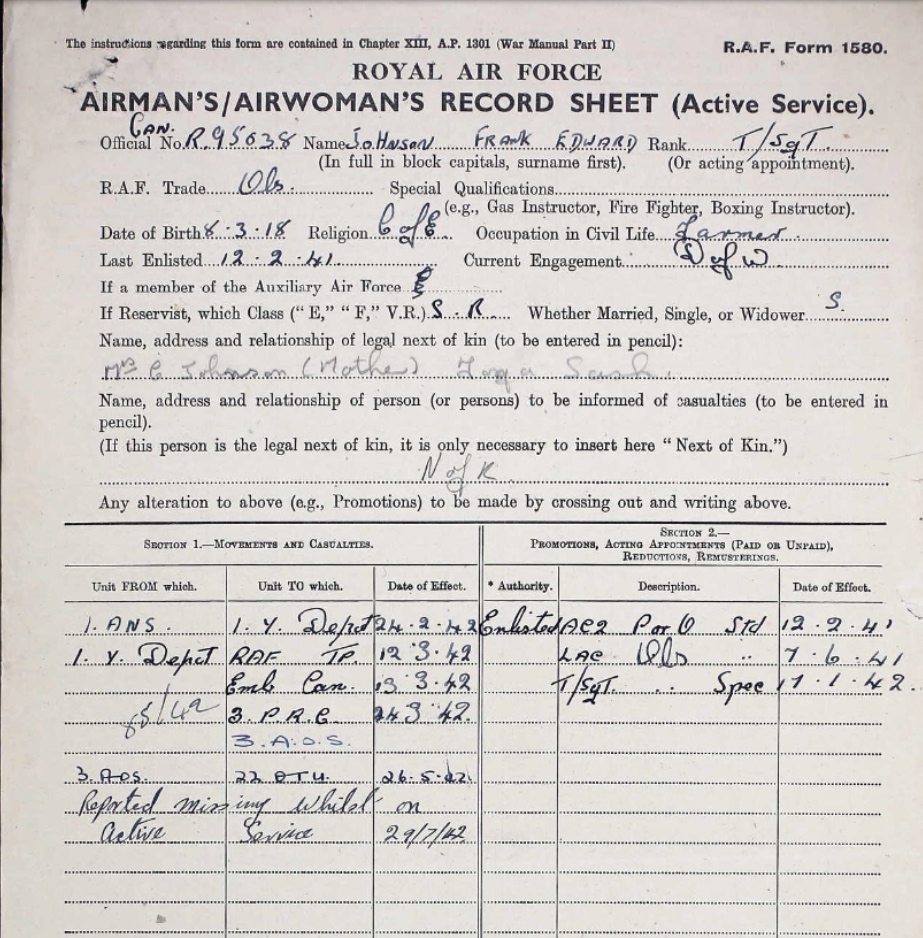 The instructions regarding this form are contained in Chapter XIII, A.P. 1301 (War Manual Part II)
R.A.F. Form 1580.
ROYAL AIR FORCE
AIRMAN'S/AIRWOMAN'S RECORD SHEET (Active Service).
Can.
Official No. R.95638 Name Johnson Frank Edward Rank T/Sgt.
(In full in block capitals, surname first). (Or acting appointment).
R.A.F. Trade Obs. Special Qualifications
(e.g., Gas Instructor, Fire Fighter, Boxing Instructor).
Date of Birth 8.3.18 Religion C of E Occupation in Civil Life Farmer
Last Enlisted 12.2.41 Current Engagement D of W
If a member of the Auxiliary Air Force
If Reservist, which Class ("E," "F," V.R.) S.R. Whether Married, Single, or Widower S.
Name, address and relationship of legal next of kin (to be entered in pencil):
Mrs C Johnson (Mother) Sask.
Name, address and relationship of person (or persons) to be informed of casualties (to be entered in
pencil).
(If this person is the legal next of kin, it is only necessary to insert here "Next of Kin.")
N of K
Any alteration to above (e.g., Promotions) to be made by crossing out and writing above.
SECTION 1.—MOVEMENTS AND CASUALTIES.
SECTION 2.—
PROMOTIONS, ACTING APPOINTMENTS (PAID OR UNPAID),
REDUCTIONS, REMUSTERINGS.
Unit FROM which. Unit TO which. Date of Effect. * Authority. Description. Date of Effect.
1. ANS. 1. Y. Depot 24.2.42 Enlisted AC2 P or O Std 12.2.41
1. Y. Depot RAF TP. 12 3.42 LAC Obs " 7.6.41
Emb Can. 13 3.42 T/Sgt. .. Spec 17.1.42.
85/42 3. P.R.C. 24 3 42.
3. A.O.S.
3. AOS. 22 OTU. 26.5.42
Reported missing whilst on
Active Service 29/7/42